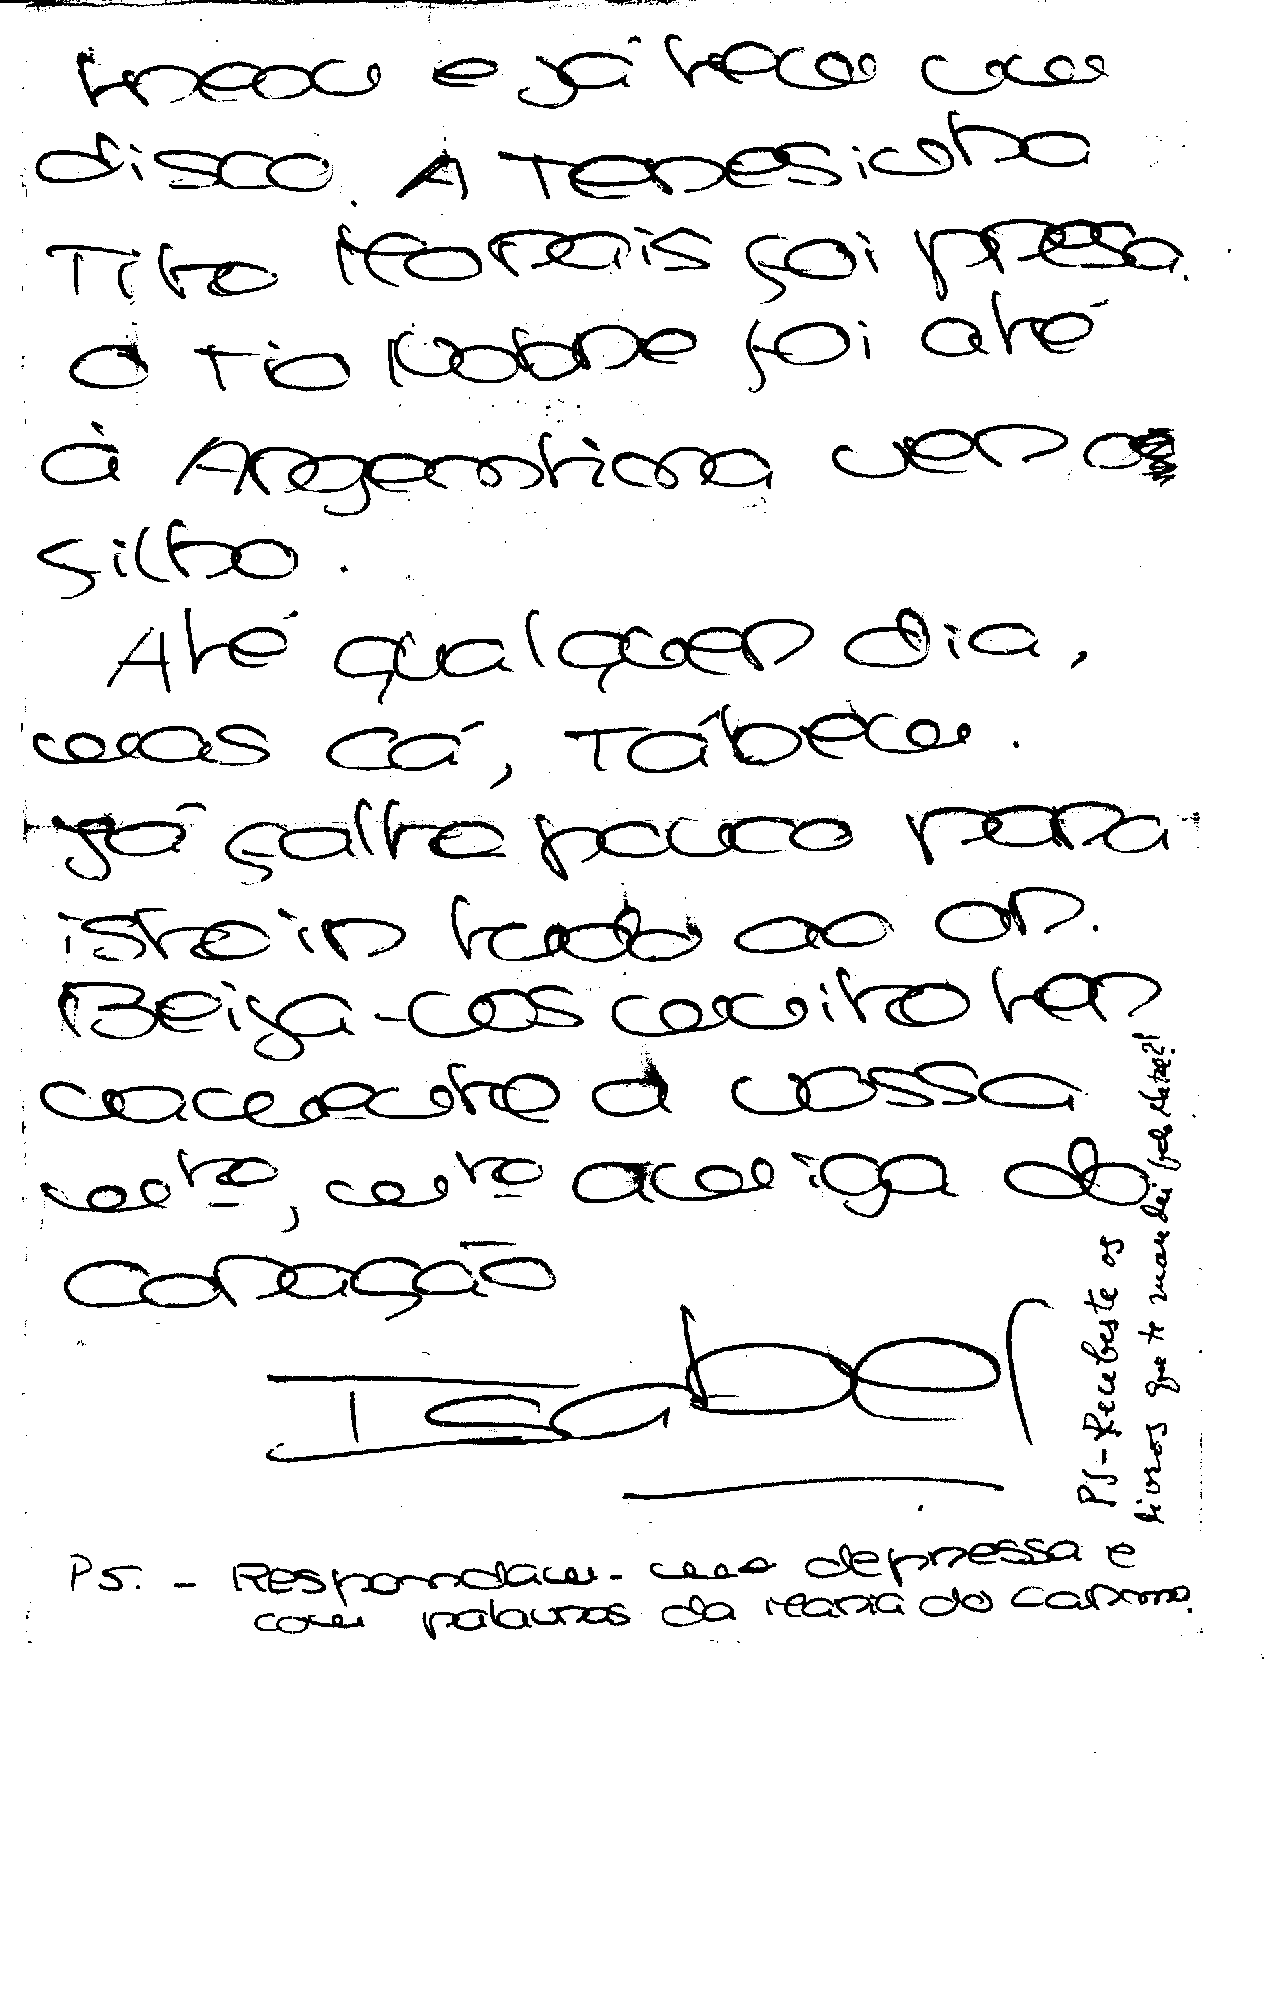 treou e já tem um
disco. A Teresinha
Tito Morais foi presa.
O Tio Nobre foi até
à Argentina ver o
filho.
Até qualquer dia,
mas cá, Tábem.
Já falta pouco para
isto ir tudo ao ar.
Beija-vos muito ter
namente a vossa
mtº, mtº amiga do
coração
Isabel
PS. - Respondam-me depressa e
com palavras da Maria do Carmo.
PS - Recebeste os
livros que te mandei pelo Natal?!